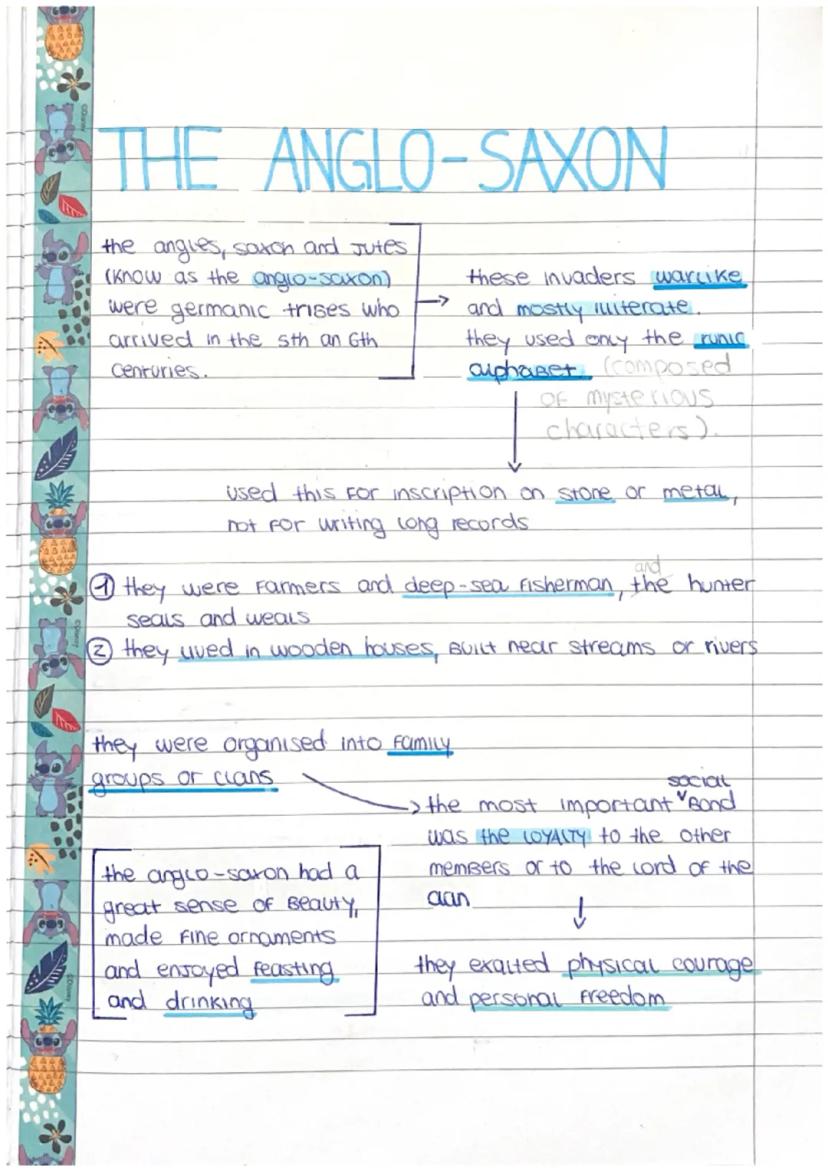 THE ANGLO-SAXON
the angles, saxon and Jutes
(know as the anglo-saxon)
were germanic trises who
arrived in the 5th an 6th
centuries.
these invaders warlike
and mostly illiterate.
they used only the runic
alphabet. (composed
of mysterious
characters).
used this for inscription on stone or metal,
not for writing long records
1 they were farmers and deep-sea fisherman, and the hunter
seals and weals
2 they lived in wooden houses, built near streams or rivers
they were organised into family
groups or clans
the most important social bond
was the LOYALTY to the other
members or to the lord of the
clan
they exalted physical courage
and personal freedom
the anglo-saxon had a
great sense of beauty,
made fine ornaments
and enjoyed feasting
and drinking